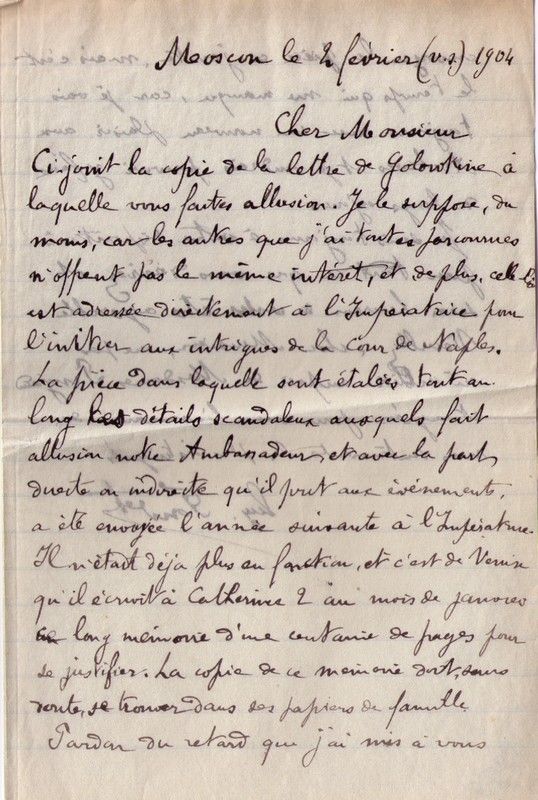 Moscou le 2 février (v.s.) 1904
Cher Monsieur
Ci-joint la copie de la lettre de Golowkine à
laquelle vous faites allusion. Je le suppose, du
moins, car les autres que j'ai toutes parcourues
n'offrent pas le même intéret, et de plus, celle-là
est adressée directement à l'Impératrice pour
l'initier aux intrigues de la cour de Naples.
La pièce dans laquelle sont étalées tout au
long les détails scandaleux auxquels fait
allusion notre Ambassadeur, et avec la part
directe ou indirecte qu'il prit aux événements,
a été envoyée l'année suivante à l'Impératrice.
Il n'était déja plus en fonction, et c'est de Venise
qu'il écrivit à Catherine 2 au mois de janvier
ce long mémoire d'une centaine de pages pour
se justifier. La copie de ce memoire doit, sans
doute, se trouver dans ses papiers de famille.
Pardon du retard que j'ai mis à vous